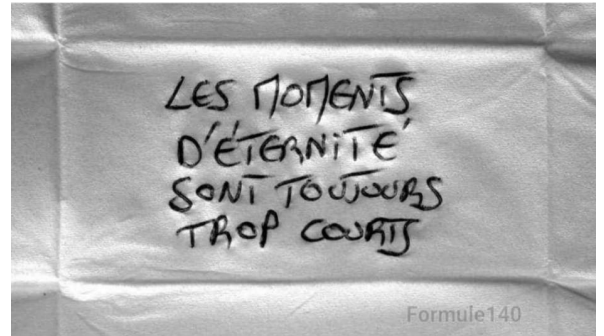 LES MOMENTS
D'ÉTERNITÉ
SONT TOUJOURS
TROP COURTS
Formule140